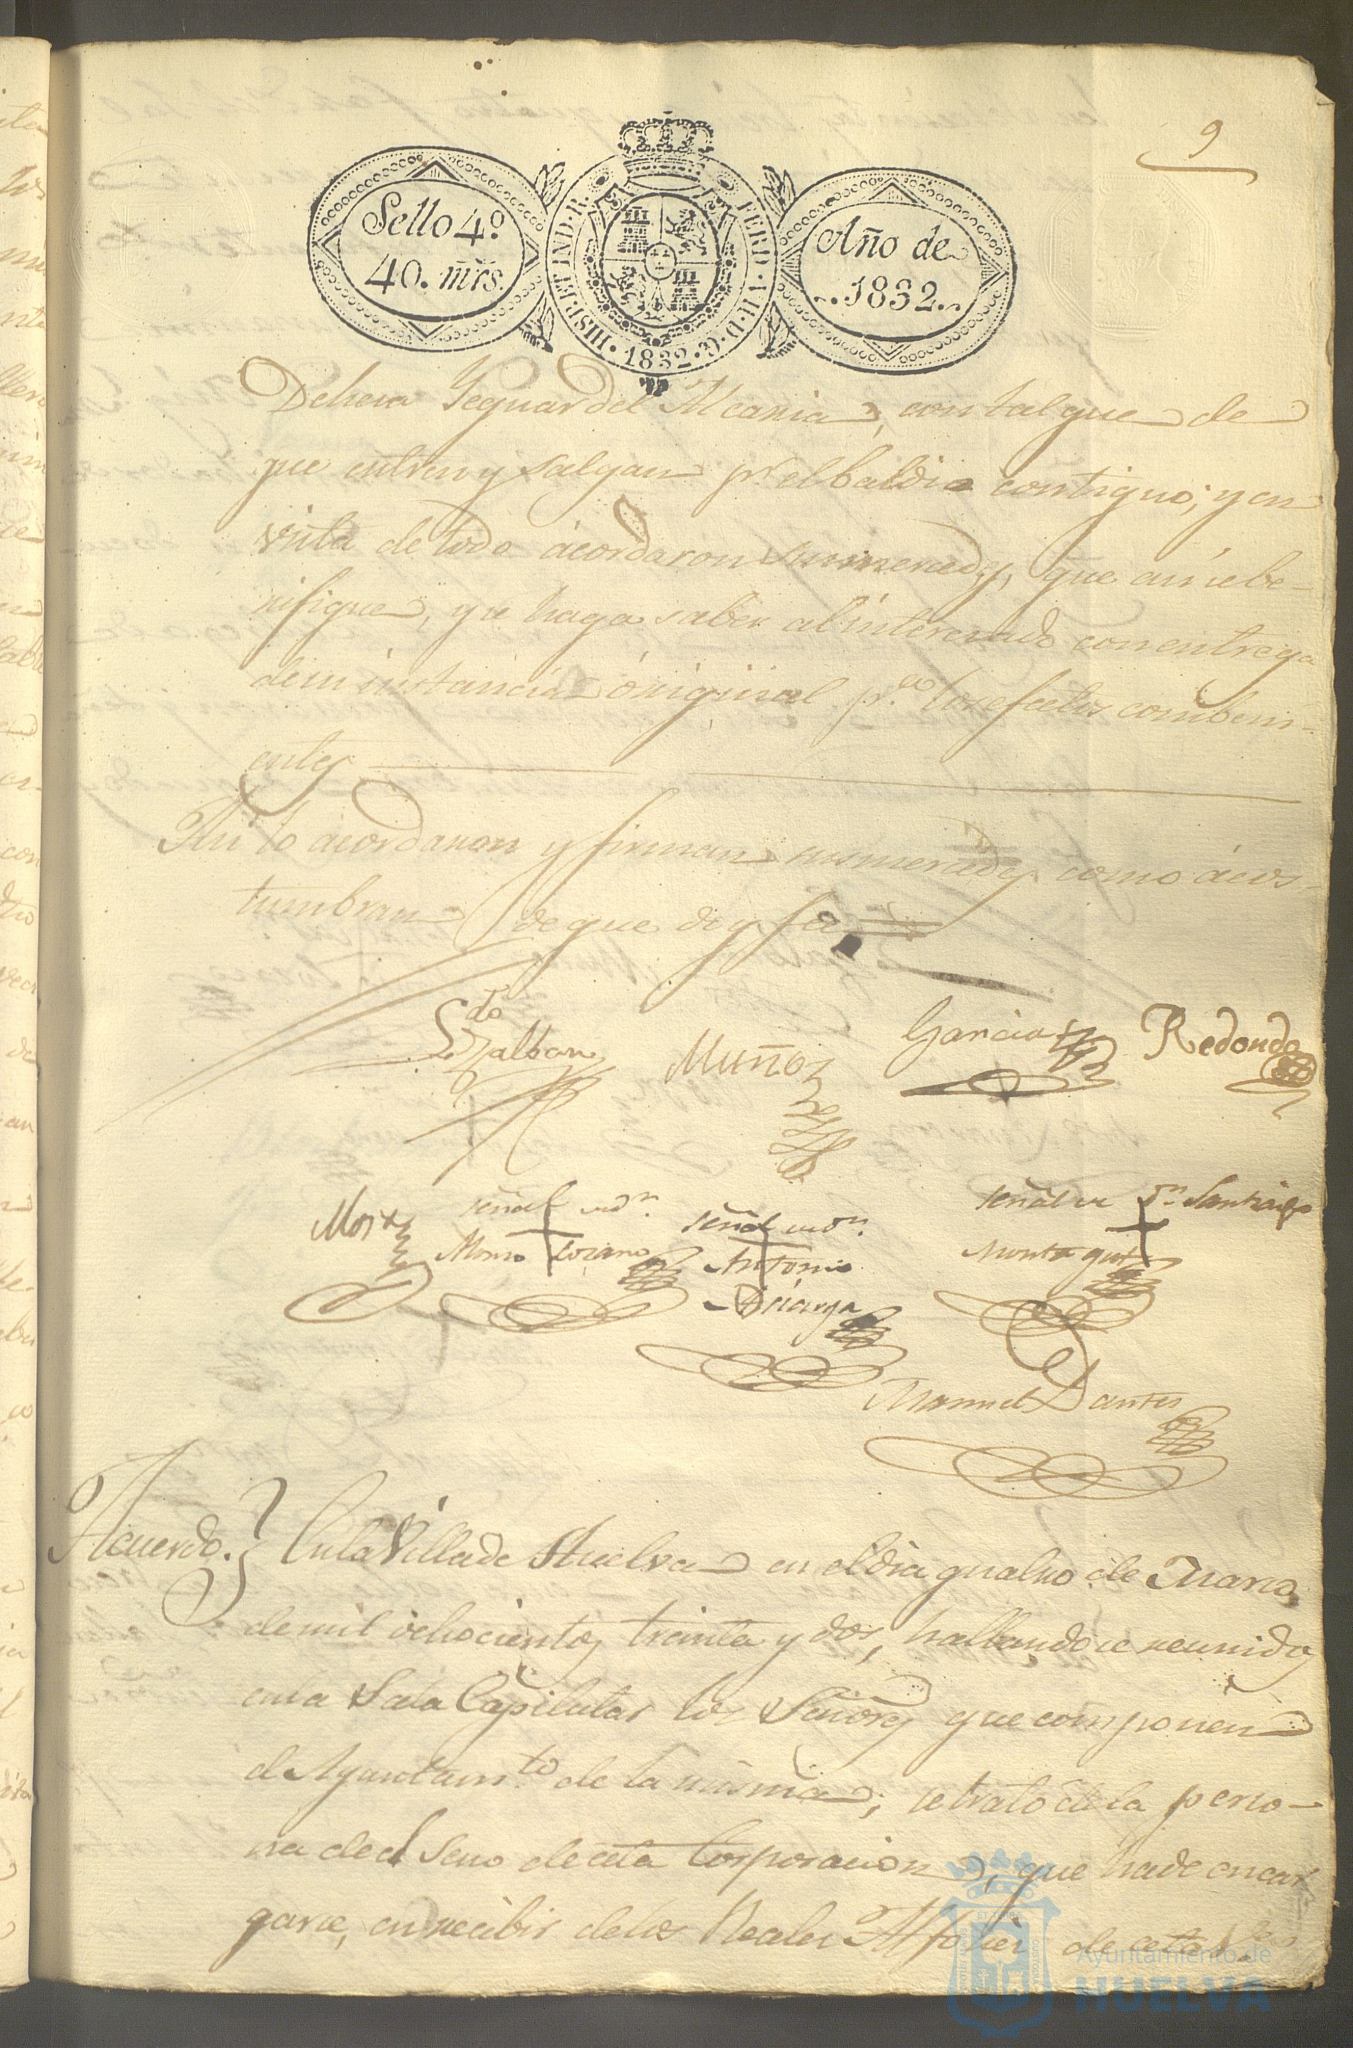 9
Sello 4º
40. mrs.
HISP. ET IND. R. FERD. VII. D. G. 1832
Año de
1832.
Dehesa Yeguar del Alcania, con tal que de
que entren y salgan pr. el baldio contiguo; y en
vista de todo ácordaron sus mercedes, que asi se be-
rifique, y se haga saber al interesado con entrega
de su instancia original pa. los efectos combeni-
entes
Asi lo acordaron y firman sus mercedes como ácos-
tumbran de que doy fee
Muñoz
Garcia
Redondo
señal de Dn.
Alonso Lozano
señal de Dn.
Antonio
señal de Dn. Santiago
Manuel Dantes
Acuerdo. En la Villa de Huelva en el dia quatro de Marzo
de mil ochocientos treinta y dos, hallandose reunidos
en la Sala Capitular los Señores que componen
el Ayuntamto. de la misma; se trató de la perso-
na del Seno de esta Corporacion, que ha de encar
garse, en recibir de los Reales Alfolies de esta Va.
Ayuntamiento de
HUELVA